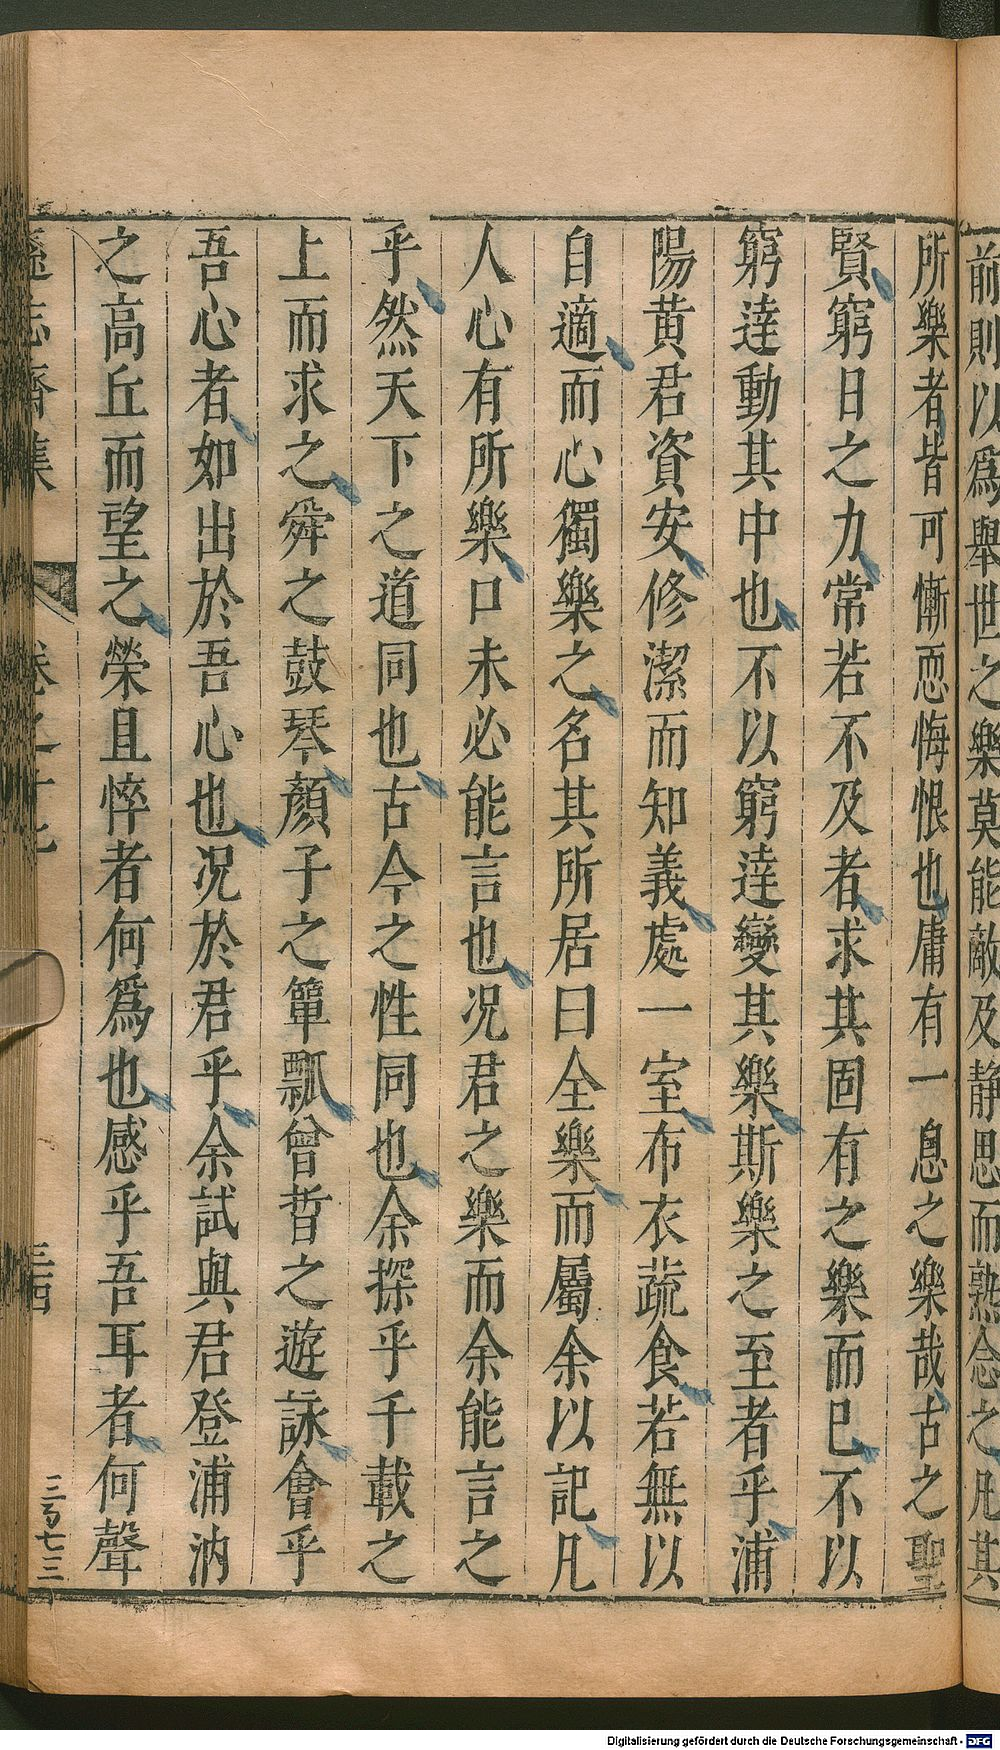 前則以爲舉世之樂莫能敵及静思而熟念之凡其
所樂者皆可慚恧悔恨也庸有一息之樂哉古之聖
賢窮日之力常若不及者求其固有之樂而已不以
窮達動其中也不以窮達變其樂斯樂之至者乎浦
陽黄君資安修潔而知義處一室布衣蔬食若無以
自適而心獨樂之名其所居曰全樂而屬余以記凡
人心有所樂口未必能言也况君之樂而余能言之
乎然天下之道同也古今之性同也余探乎千載之
上而求之舜之鼓琴顏子之簞瓢曾晳之遊詠會乎
吾心者如出於吾心也况於君乎余試與君登浦汭
之高丘而望之榮且悴者何爲也感乎吾耳者何聲
遜志齋集 卷之十七 三十四 三百七三
Digitalisierung gefördert durch die Deutsche Forschungsgemeinschaft - DFG